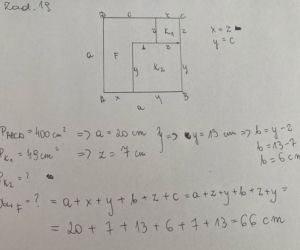 Zad. 19
D c z C
z K₁ z
x = z
y = c
a F b z
y K₂ y
A x y B
a
P_ABCD = 400 cm² => a = 20 cm
P_K₁ = 49 cm² => z = 7 cm
} => y = 13 cm => b = y - z
b = 13 - 7
b = 6 cm
P_K₂ = ?
F = ? = a + x + y + b + z + c = a + z + y + b + z + y =
= 20 + 7 + 13 + 6 + 7 + 13 = 66 cm